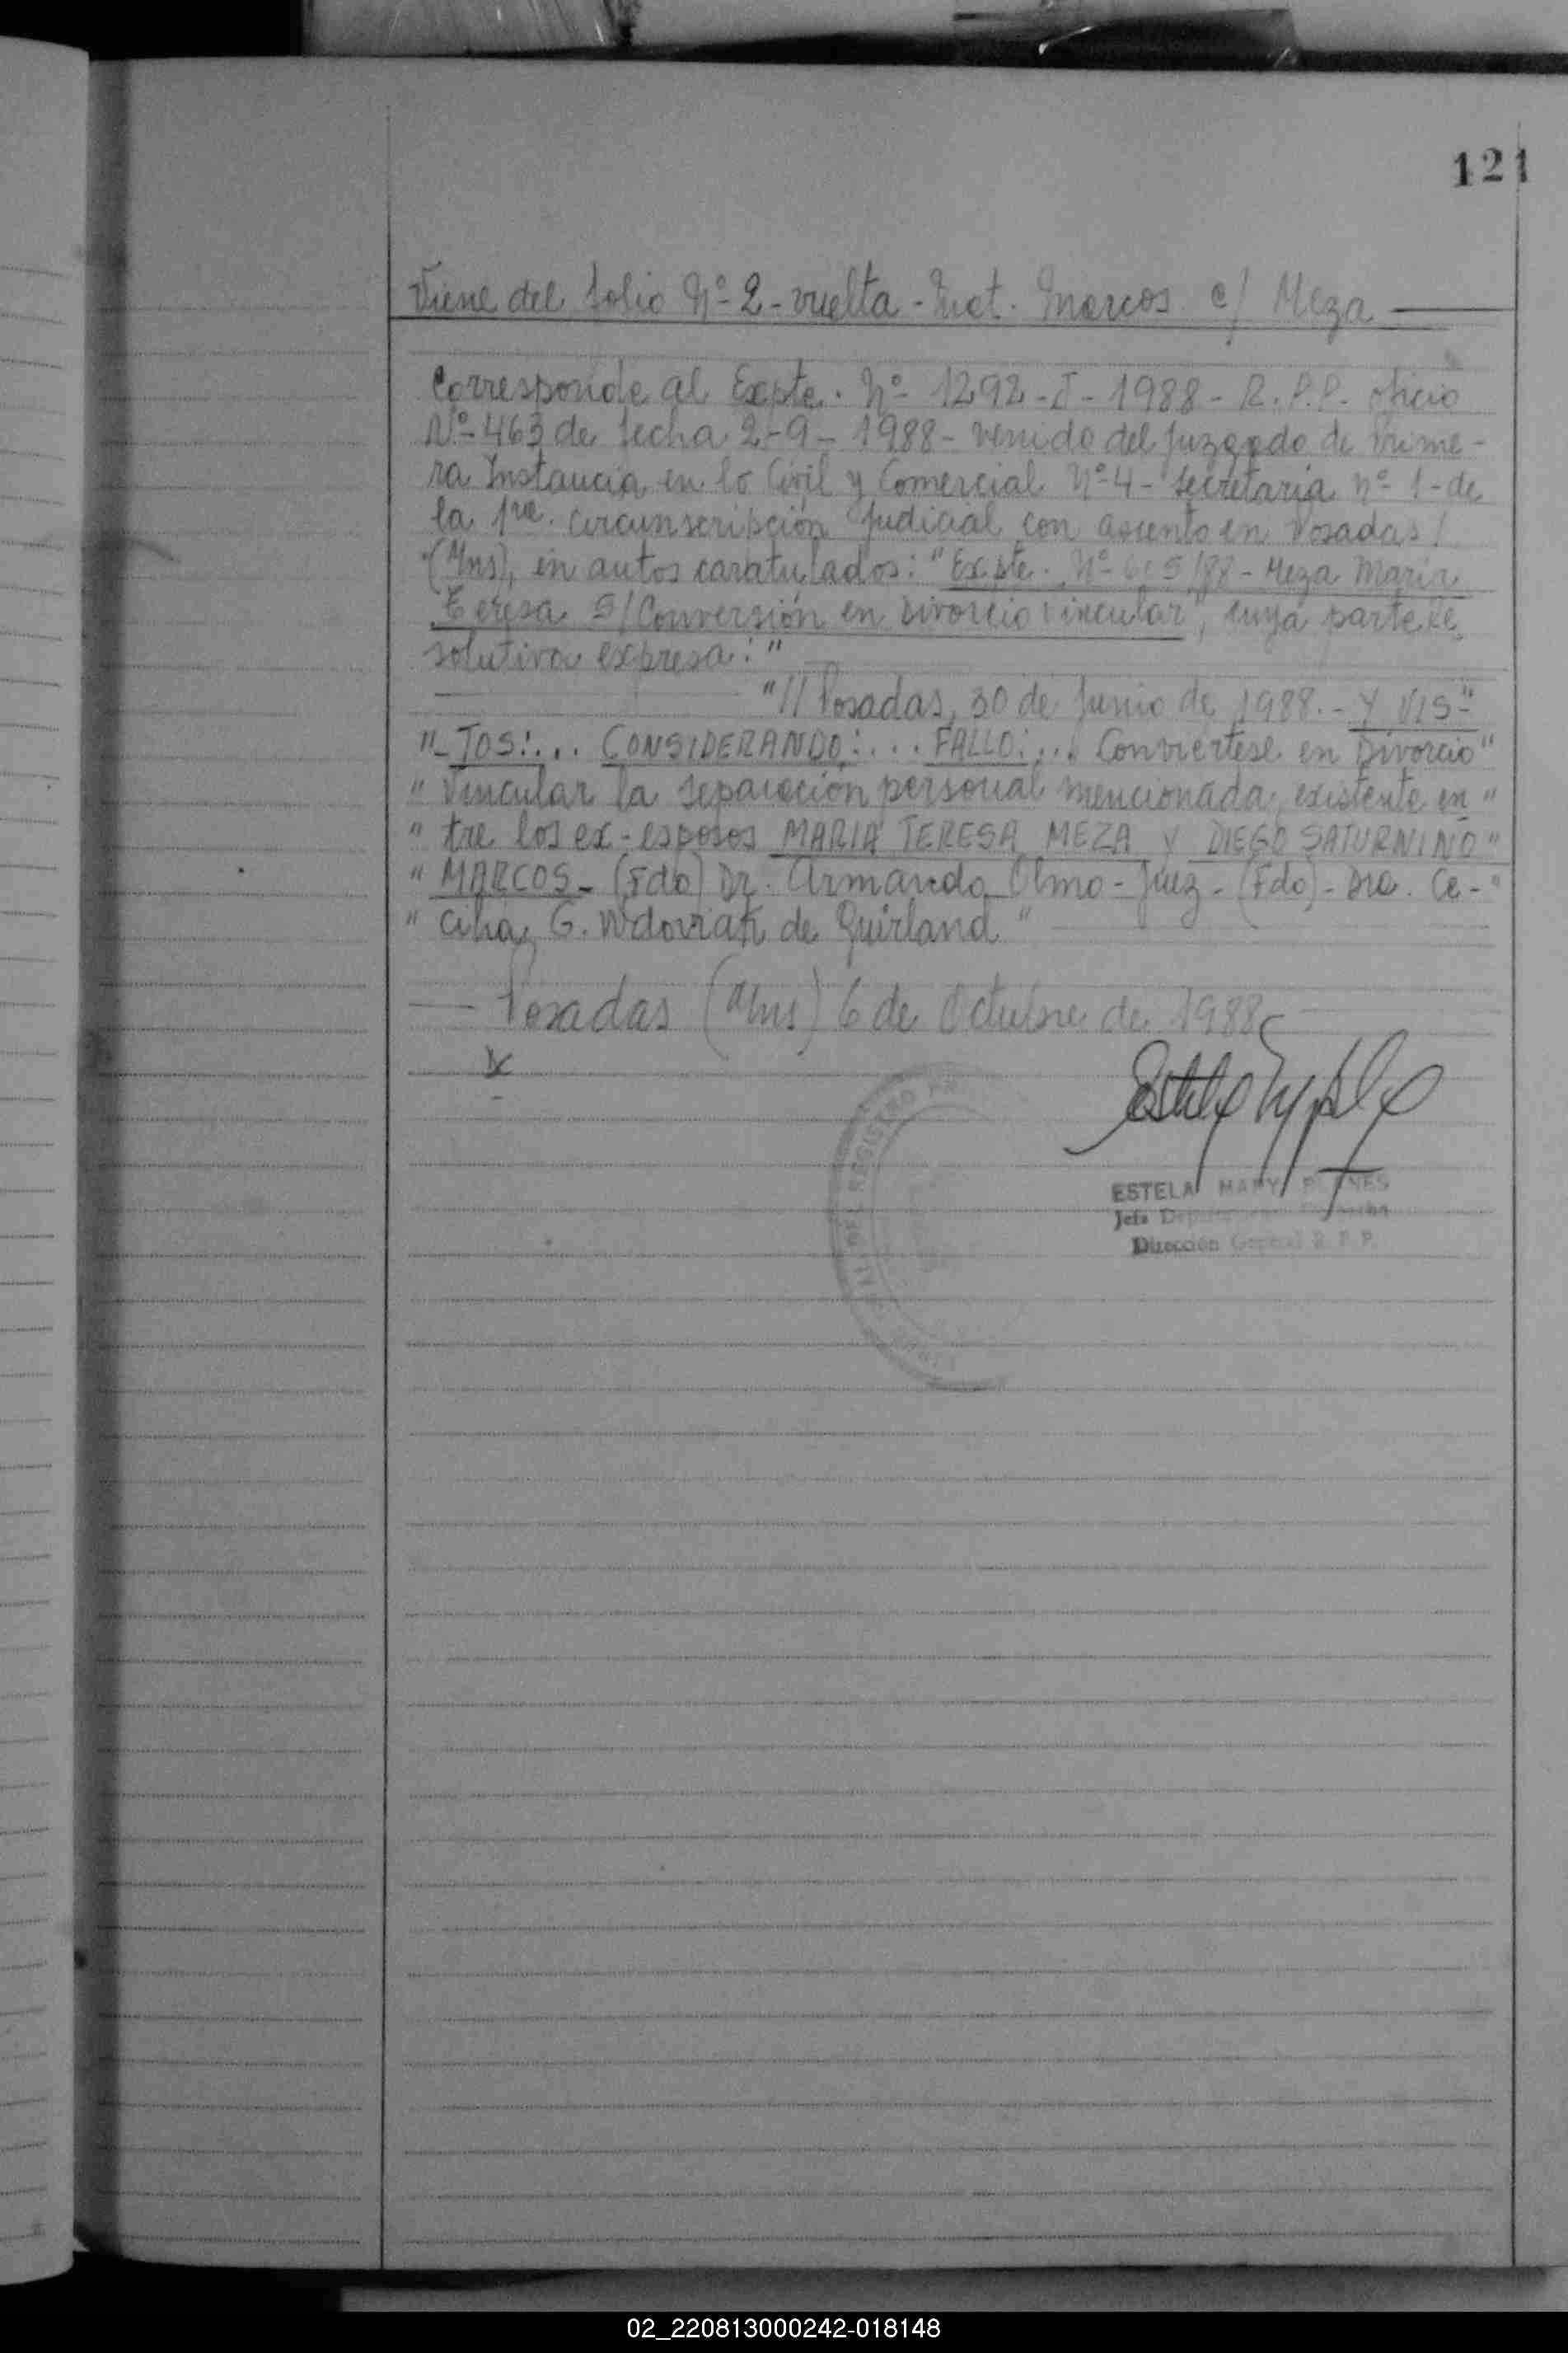 121
Viene del folio Nº 2 - vuelta - Mat. Marcos c/ Meza
Corresponde al Expte. Nº 1292-J-1988- R.P.P. oficio
Nº 463 de fecha 2-9-1988- venido del Juzgado de Prime-
ra Instancia en lo Civil y Comercial Nº 4- Secretaria nº 1- de
la 1ra. circunscripción Judicial con asiento en Posadas/
(Mns), en autos caratulados: "Expte. Nº /88 - Meza Maria
Teresa S/Conversión en Divorcio vincular", cuya parte Re
solutiva expresa: "
"// Posadas, 30 de Junio de 1988.- Y VIS-"
"-TOS:... CONSIDERANDO:.... FALLO:... Conviertese en Divorcio"
" Vincular la separación personal mencionada, existente en "
" tre los ex-esposos MARIA TERESA MEZA y DIEGO SATURNINO "
" MARCOS- (Fdo) Dr. Armando Olmo - Juez - (Fdo)- Dra. Ce- "
" cilia G. de Guirland "
Posadas (Mns) 6 de Octubre de 1988
ESTELA MARY
Jefa
Dirección General R.P.P.
02_220813000242-018148